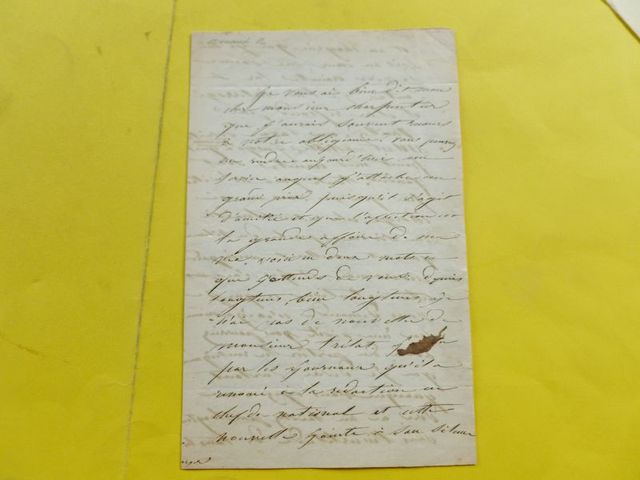 je vous ai bien dit mon
cher monsieur charpentier
que j'aurais souvent recours
à votre obligeance. vous pouvez
me rendre aujourd'hui un
service auquel j'attache un
grand prix, puisqu'il s'agit
d'amitié et que l'affection est
la grande affaire de ma
vie. voici en deux mots ce
que j'attends de vous. depuis
longtems, bien longtems, je
n'ai pas de nouvelles de
monsieur trélat,
par les journaux qu'il a
renoncé à la rédaction en
chef du national et cette
nouvelle jointe à son silence